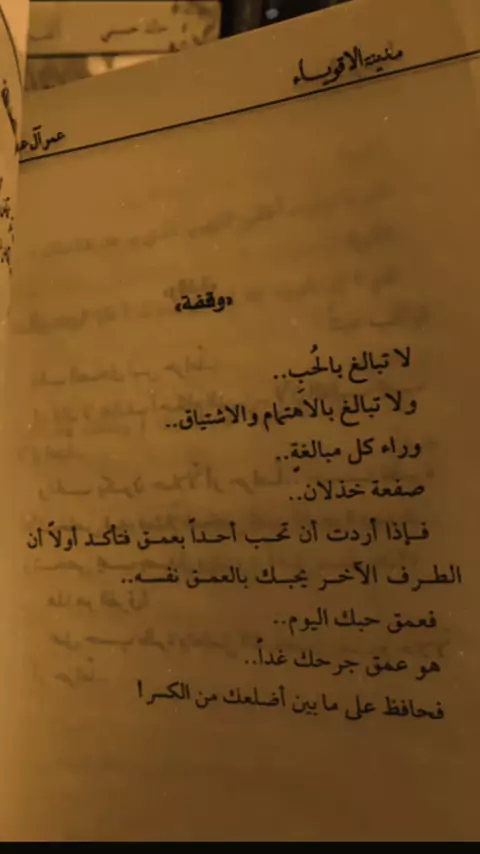 مدينة الاقوياء
عمر آل
«وقفة»
لا تبالغ بالحُب..
ولا تبالغ بالاهتمام والاشتياق..
وراء كل مبالغةٍ..
صفعة خذلان..
فإذا أردت أن تحب أحداً بعمق فتأكد أولاً أن
الطرف الآخر يحبك بالعمق نفسه..
فعمق حبك اليوم..
هو عمق جرحك غداً..
فحافظ على ما بين أضلعك من الكسر!